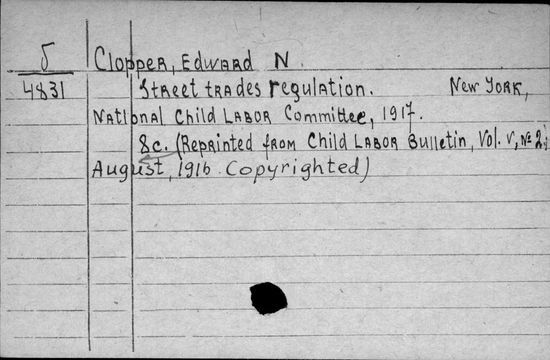 5 Clopper, Edward N.
4831 Street trades regulation. New York,
National Child Labor Committee, 1917.
8c. (Reprinted from Child Labor Bulletin, Vol. V, No 2;
August, 1916. Copyrighted)